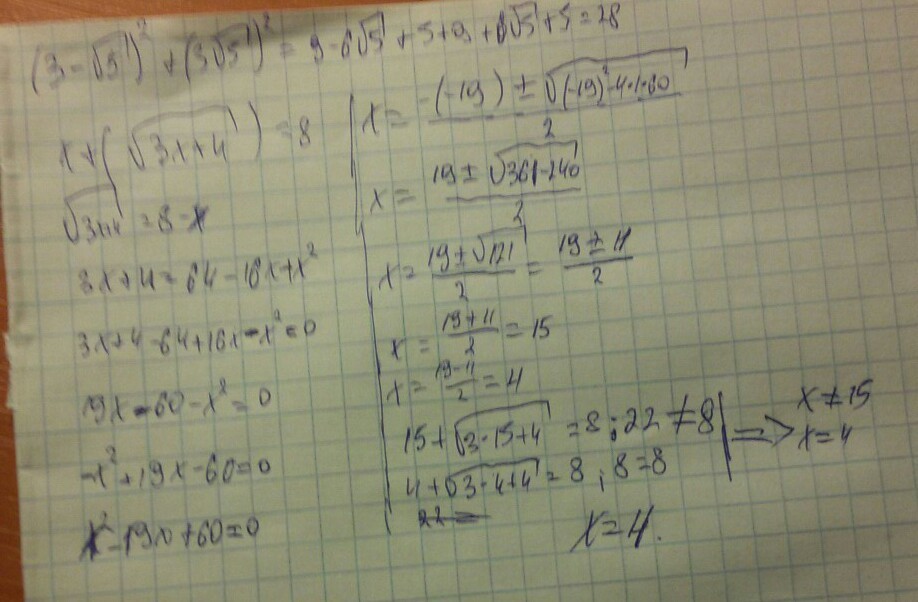 (3-√5)² + (3√5)² = 9-6√5 + 5+9+6√5+5=28
x+(√3x+4)=8
√3x+4 = 8-x
3x+4=64-16x+x²
3x+4-64+16x-x²=0
19x-60-x²=0
-x²+19x-60=0
x²-19x+60=0
x= (-(-19) ± √(-19)²-4·1·60)/2
x= (19± √361-240)/2
x= (19±√121)/2 = (19±11)/2
x= (19+11)/2 = 15
x= (19-11)/2 = 4
15+√3·15+4 =8; 22≠8
4+√3·4+4 = 8; 8=8
=> x≠15
x=4
x=4.